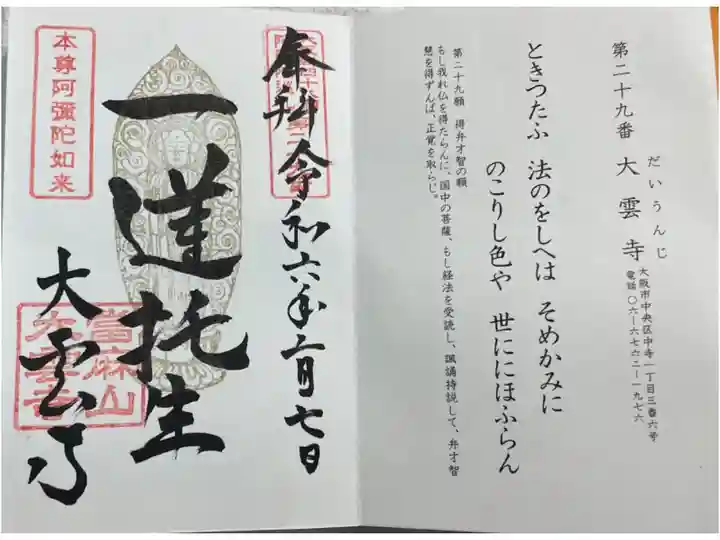 第二十九番 大雲寺
だいうんじ
大阪市中央区中寺一丁目三番六号
電話 〇六-六七六二-一九七六
ときつたふ 法のをしへは そめかみに
のこりし色や 世ににほふらん
第二十九願 得弁才智の願
もし我れ仏を得たらんに、国中の菩薩、もし経法を受読し、諷誦持説して、弁才智
慧を得ずんば、正覚を取らじ。
奉拝 令和六年六月七日
一蓮托生
大雲寺
本尊阿彌陀如来
當麻山
大雲寺